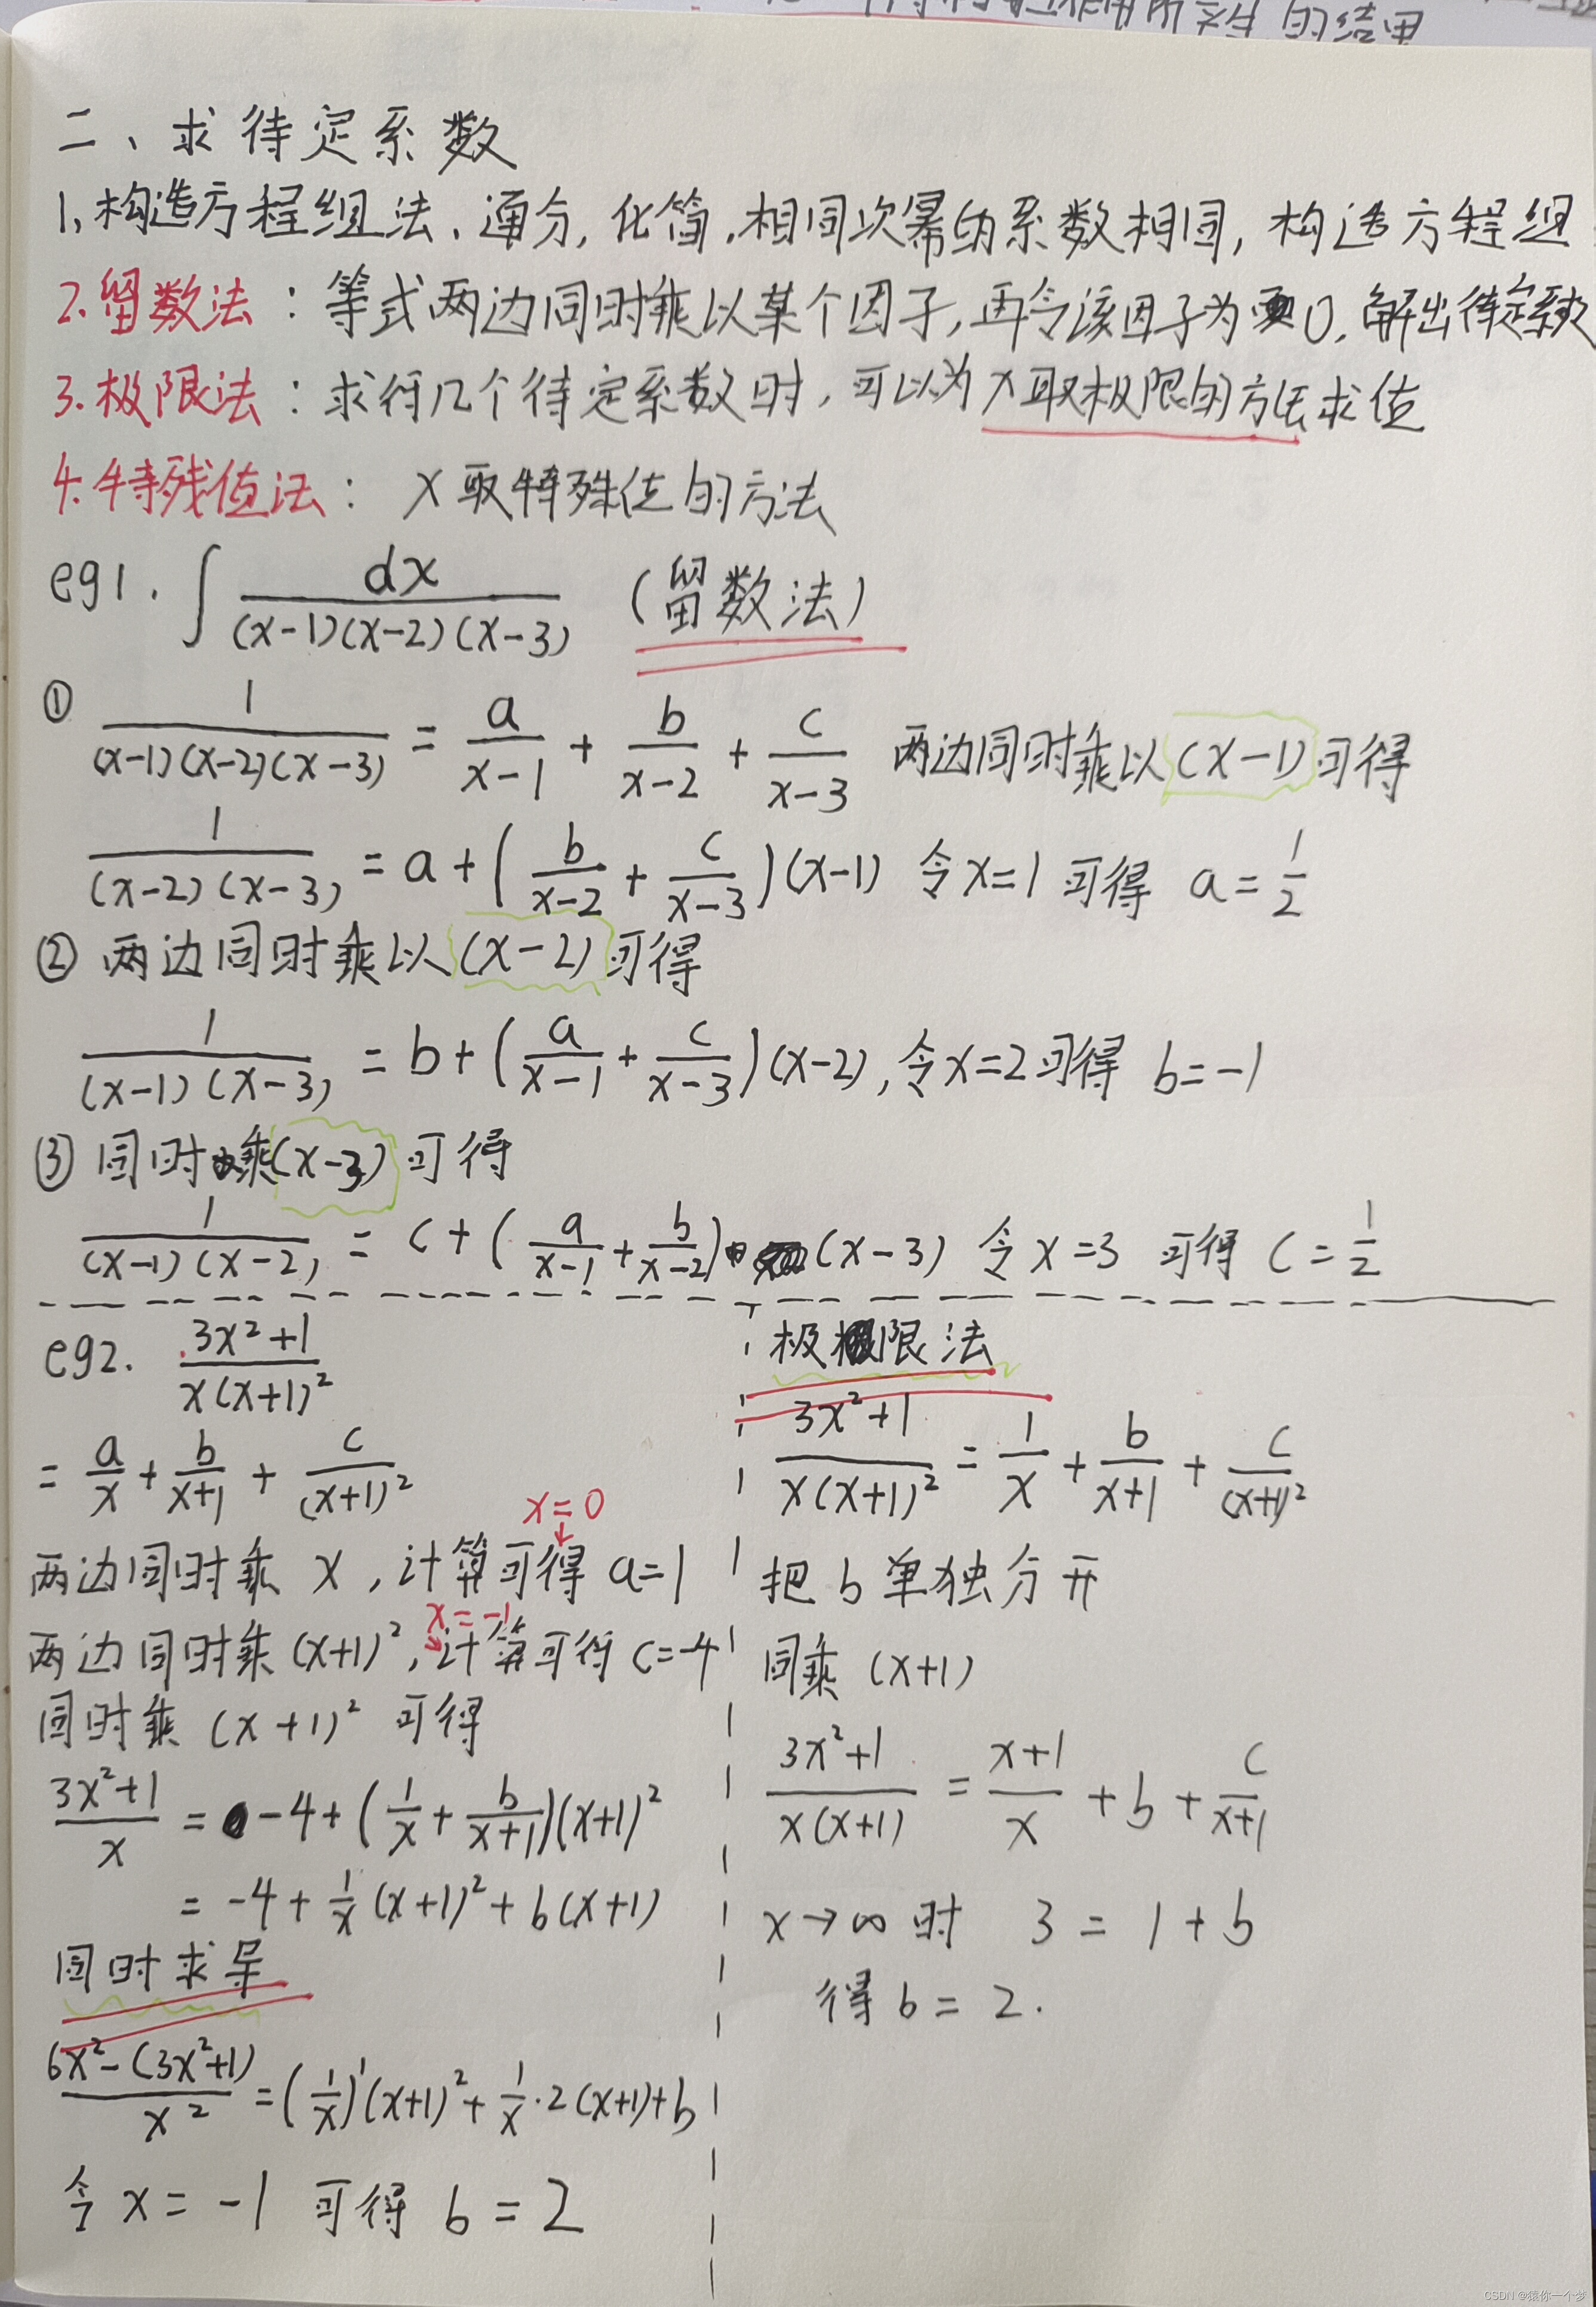 的结果
二、求待定系数
1、构造方程组法、通分,化简,相同次幂的系数相同,构造方程组
2.留数法:等式两边同时乘以某个因子,再令该因子为0,解出待定系数
3.极限法:求得几个待定系数时,可以为x取极限的方法求值
4.特殊值法:x取特殊值的方法
eg1. ∫ dx/((x-1)(x-2)(x-3)) (留数法)
① 1/((x-1)(x-2)(x-3)) = a/(x-1) + b/(x-2) + c/(x-3) 两边同时乘以(x-1)可得
1/((x-2)(x-3)) = a + (b/(x-2) + c/(x-3))(x-1) 令x=1可得 a=1/2
② 两边同时乘以(x-2)可得
1/((x-1)(x-3)) = b + (a/(x-1) + c/(x-3))(x-2),令x=2可得 b=-1
③ 同时乘(x-3)可得
1/((x-1)(x-2)) = c + (a/(x-1) + b/(x-2))(x-3) 令x=3 可得 c=1/2
eg2. (3x²+1)/(x(x+1)²)
= a/x + b/(x+1) + c/(x+1)²
x=0
两边同时乘 x,计算可得 a=1
x=-1
两边同时乘(x+1)²,计算可得 c=-4
同时乘 (x+1)² 可得
(3x²+1)/x = -4+(1/x + b/(x+1))(x+1)²
= -4 + 1/x (x+1)² + b(x+1)
同时求导
(6x²-(3x²+1))/x² = (1/x)'(x+1)² + 1/x·2(x+1)+b
令 x=-1 可得 b=2
极限法
(3x²+1)/(x(x+1)²) = 1/x + b/(x+1) + c/(x+1)²
把b单独分开
同乘 (x+1)
(3x²+1)/(x(x+1)) = (x+1)/x + b + c/(x+1)
x→∞时 3 = 1+b
得 b = 2.
CSDN @猿你一个梦